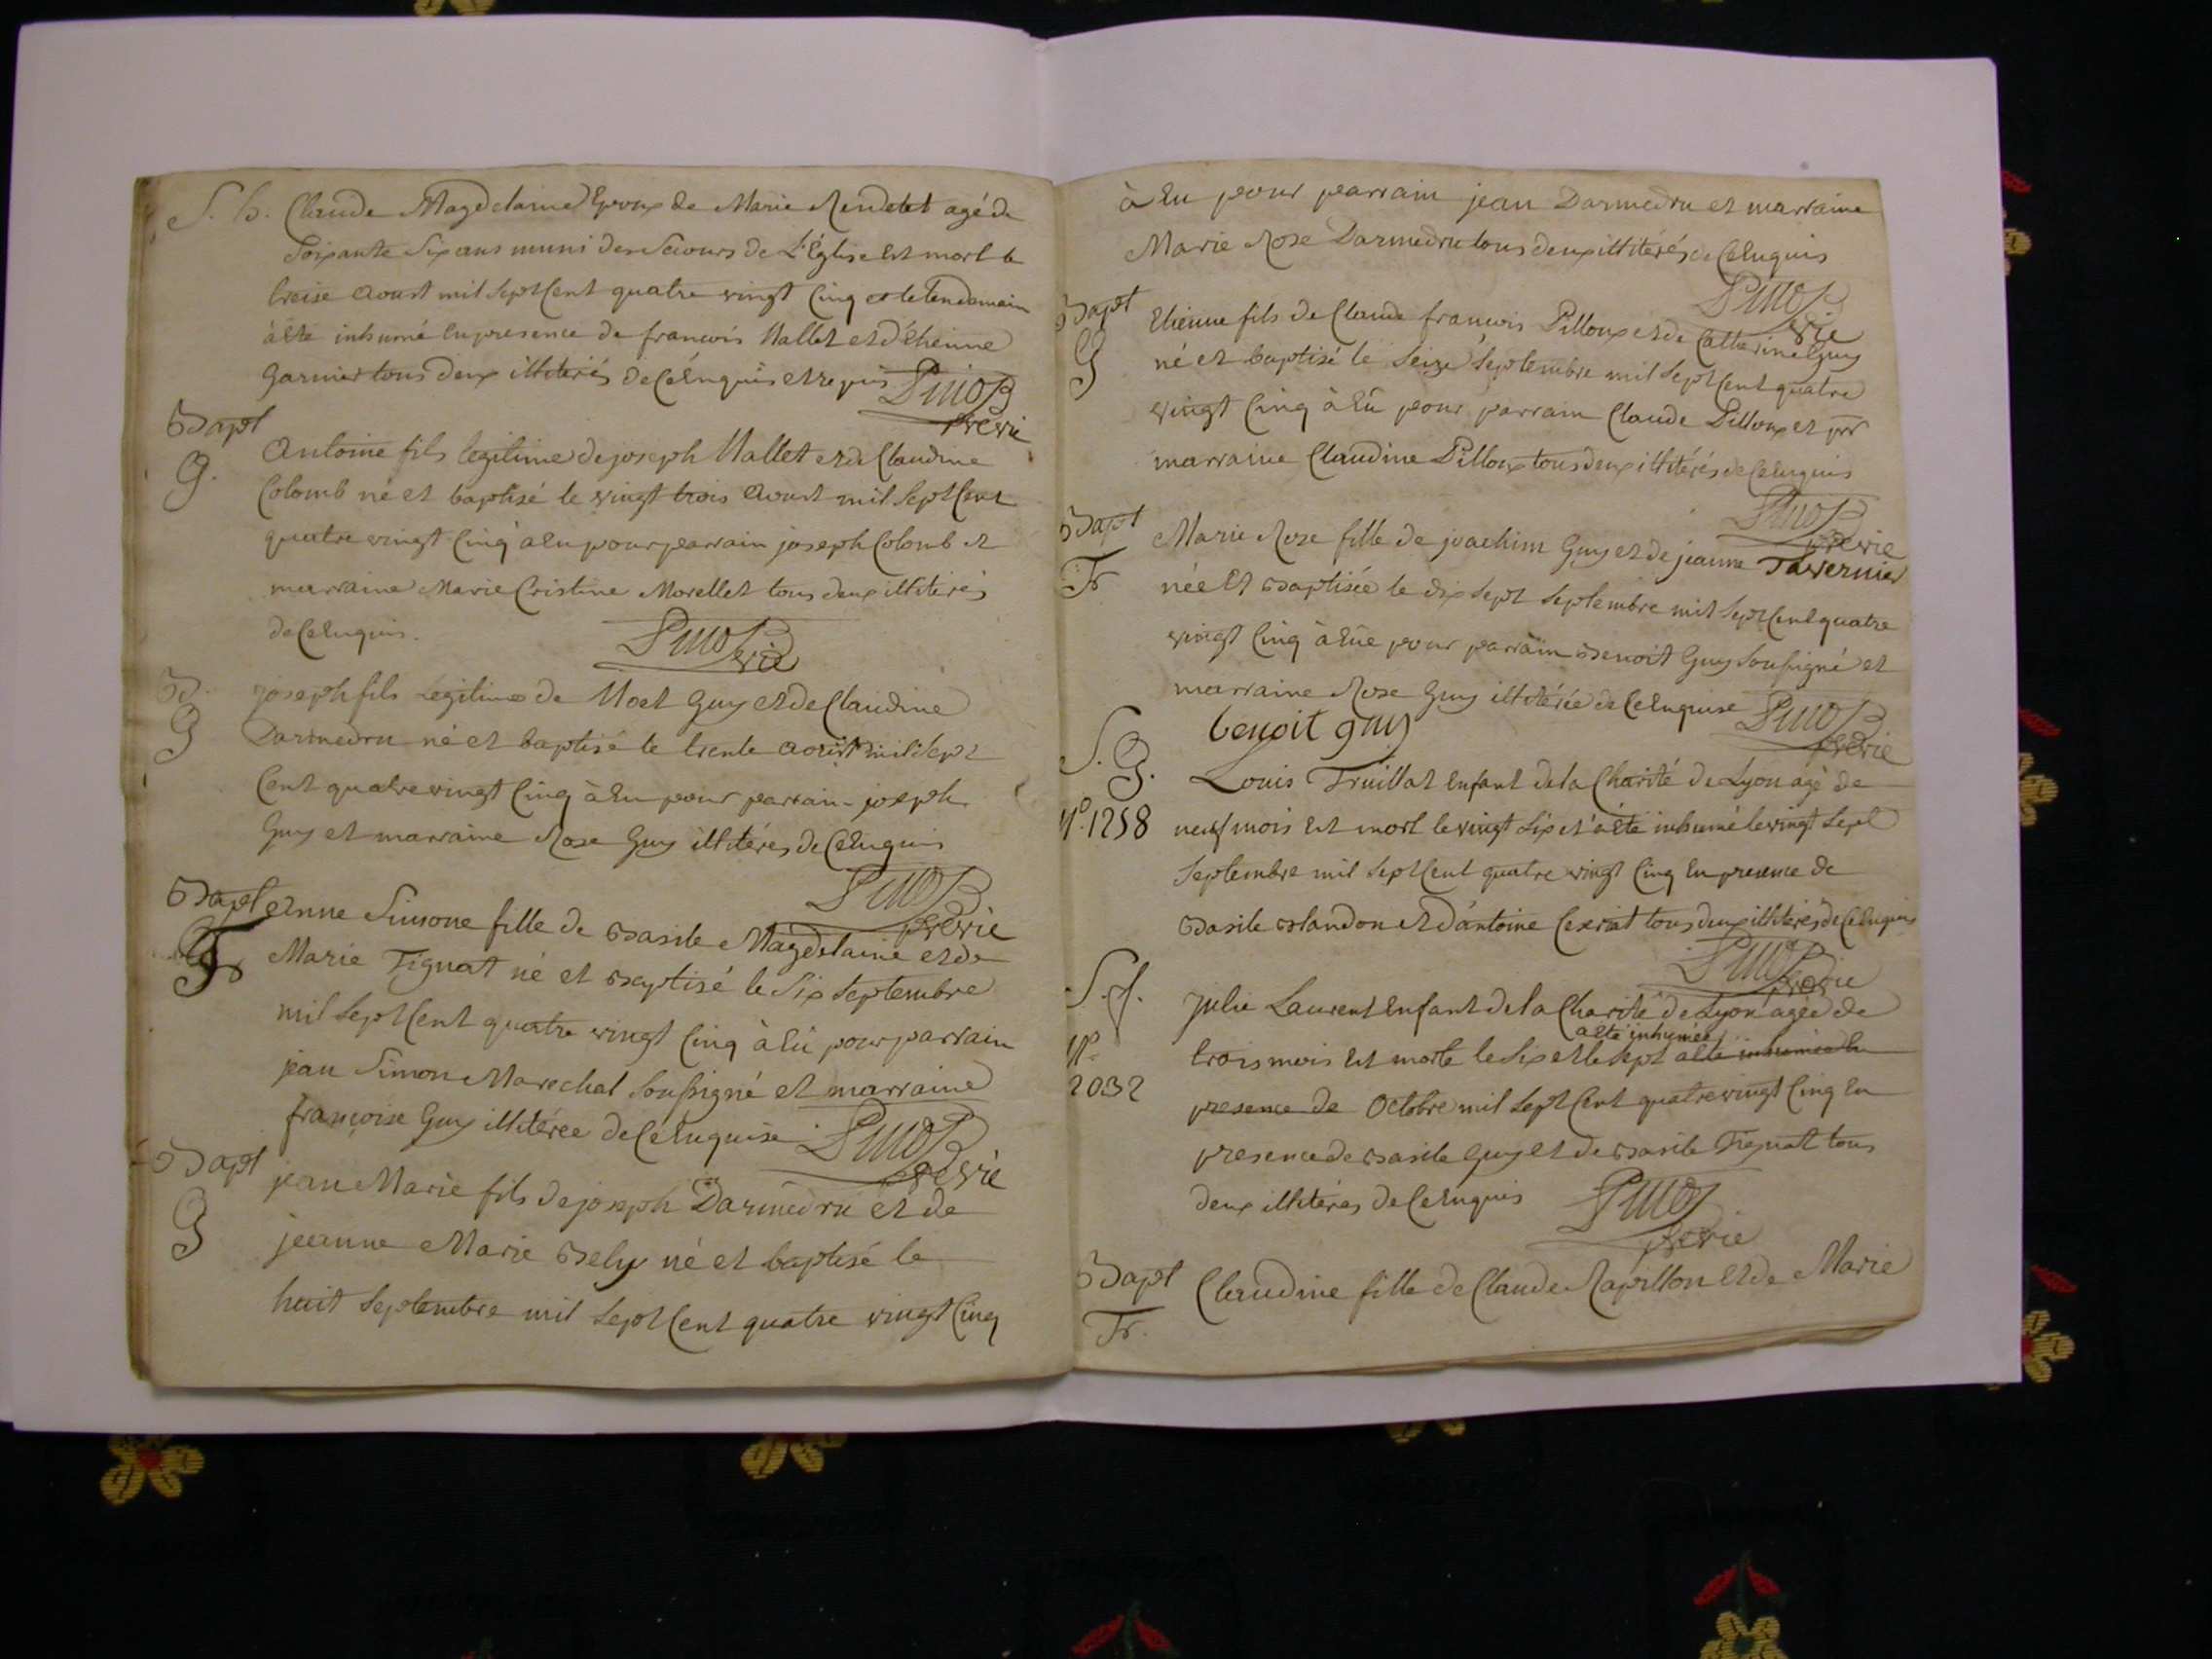 S. h. Claude Magdelaine Epoux de Marie Rendelet agé de
Soixante Six ans muni des Secours de L'Église est mort le
treise Aoust mil Sept Cent quatre vingt Cinq et le lendemain
à été inhumé En presence de francois Vallet et d'Etienne
Garnier tous deux illitérés de Ce Enquis et repris
prevrie
Bapt
G.
Antoine fils legitime de joseph Vallet et de Claudine
Colomb né et baptisé le vingt trois Aoust mil Sept Cent
quatre vingt Cinq à Eu pour parrain joseph Colomb et
marraine Marie Cristine Morellet tous deux illitérés
de Ce Enquis.
B.
G
joseph fils Legitime de Noel Guy et de Claudine
Darmedru né et baptisé le trente aoust mil Sept
Cent quatre vingt Cinq à Eu pour parrain joseph
Guy et marraine Rose Guy illitérés de Ce Enquis
prevrie
Bapt
F
Anne Simone fille de Basile Magdelaine et de
Marie Tignat né et Baptisé le Six Septembre
mil Sept Cent quatre vingt Cinq à Eü pour parrain
jean Simon Marechal Soussigné et marraine
françoise Guy illitérée de Cé Enquise
prevrie
Bapt
G
jean Marie fils de joseph Darmedru et de
jeanne Marie Bely né et baptisé le
huit Septembre mil Sept Cent quatre vingt Cinq
à Eu pour parrain jean Darmedru et marraine
Marie Rose Darmedru tous deux illitérés de Ce Enquis
Bapt
G
Etienne fils de Claude francois Pilloux et de Catherine Guy
né et baptisé le Seize Septembre mil Sept Cent quatre
vingt Cinq à Eü pour parrain Claude Pilloux et
marraine Claudine Pilloux tous deux illitérés de Ce Enquis
prevrie
Bapt
Fr
Marie Rose fille de joachim Guy et de jeanne Tavernier
née Et Baptisée le dix Sept Septembre mil Sept Cent quatre
vingt Cinq à Eüe pour parrain Benoit Guy Soussigné et
marraine Rose Guy illitérée de Ce Enquise
prevrie
benoit guy
S. G.
N° 1258
Louis Truillat Enfant de la Charité de Lyon agé de
neuf mois Est mort le vingt Six et à été inhumé le vingt Sept
Septembre mil Sept Cent quatre vingt Cinq En presence de
Basile Blandon et d'antoine Cexriat tous deux illitérés de Ce Enquis
prevrie
S. f.
N°
2032
Julie Laurent Enfant de la Charité de Lyon agée de
a été inhumée
trois mois Est morte le Six et le Sept a été inhumée En
presence de Octobre mil Sept Cent quatre vingt Cinq En
presence de Basile Guy et de Basile Tignat tous
deux illitérés de Ce Enquis
prevrie
Bapt
Fr.
Claudine fille de Claude Rapillon et de Marie